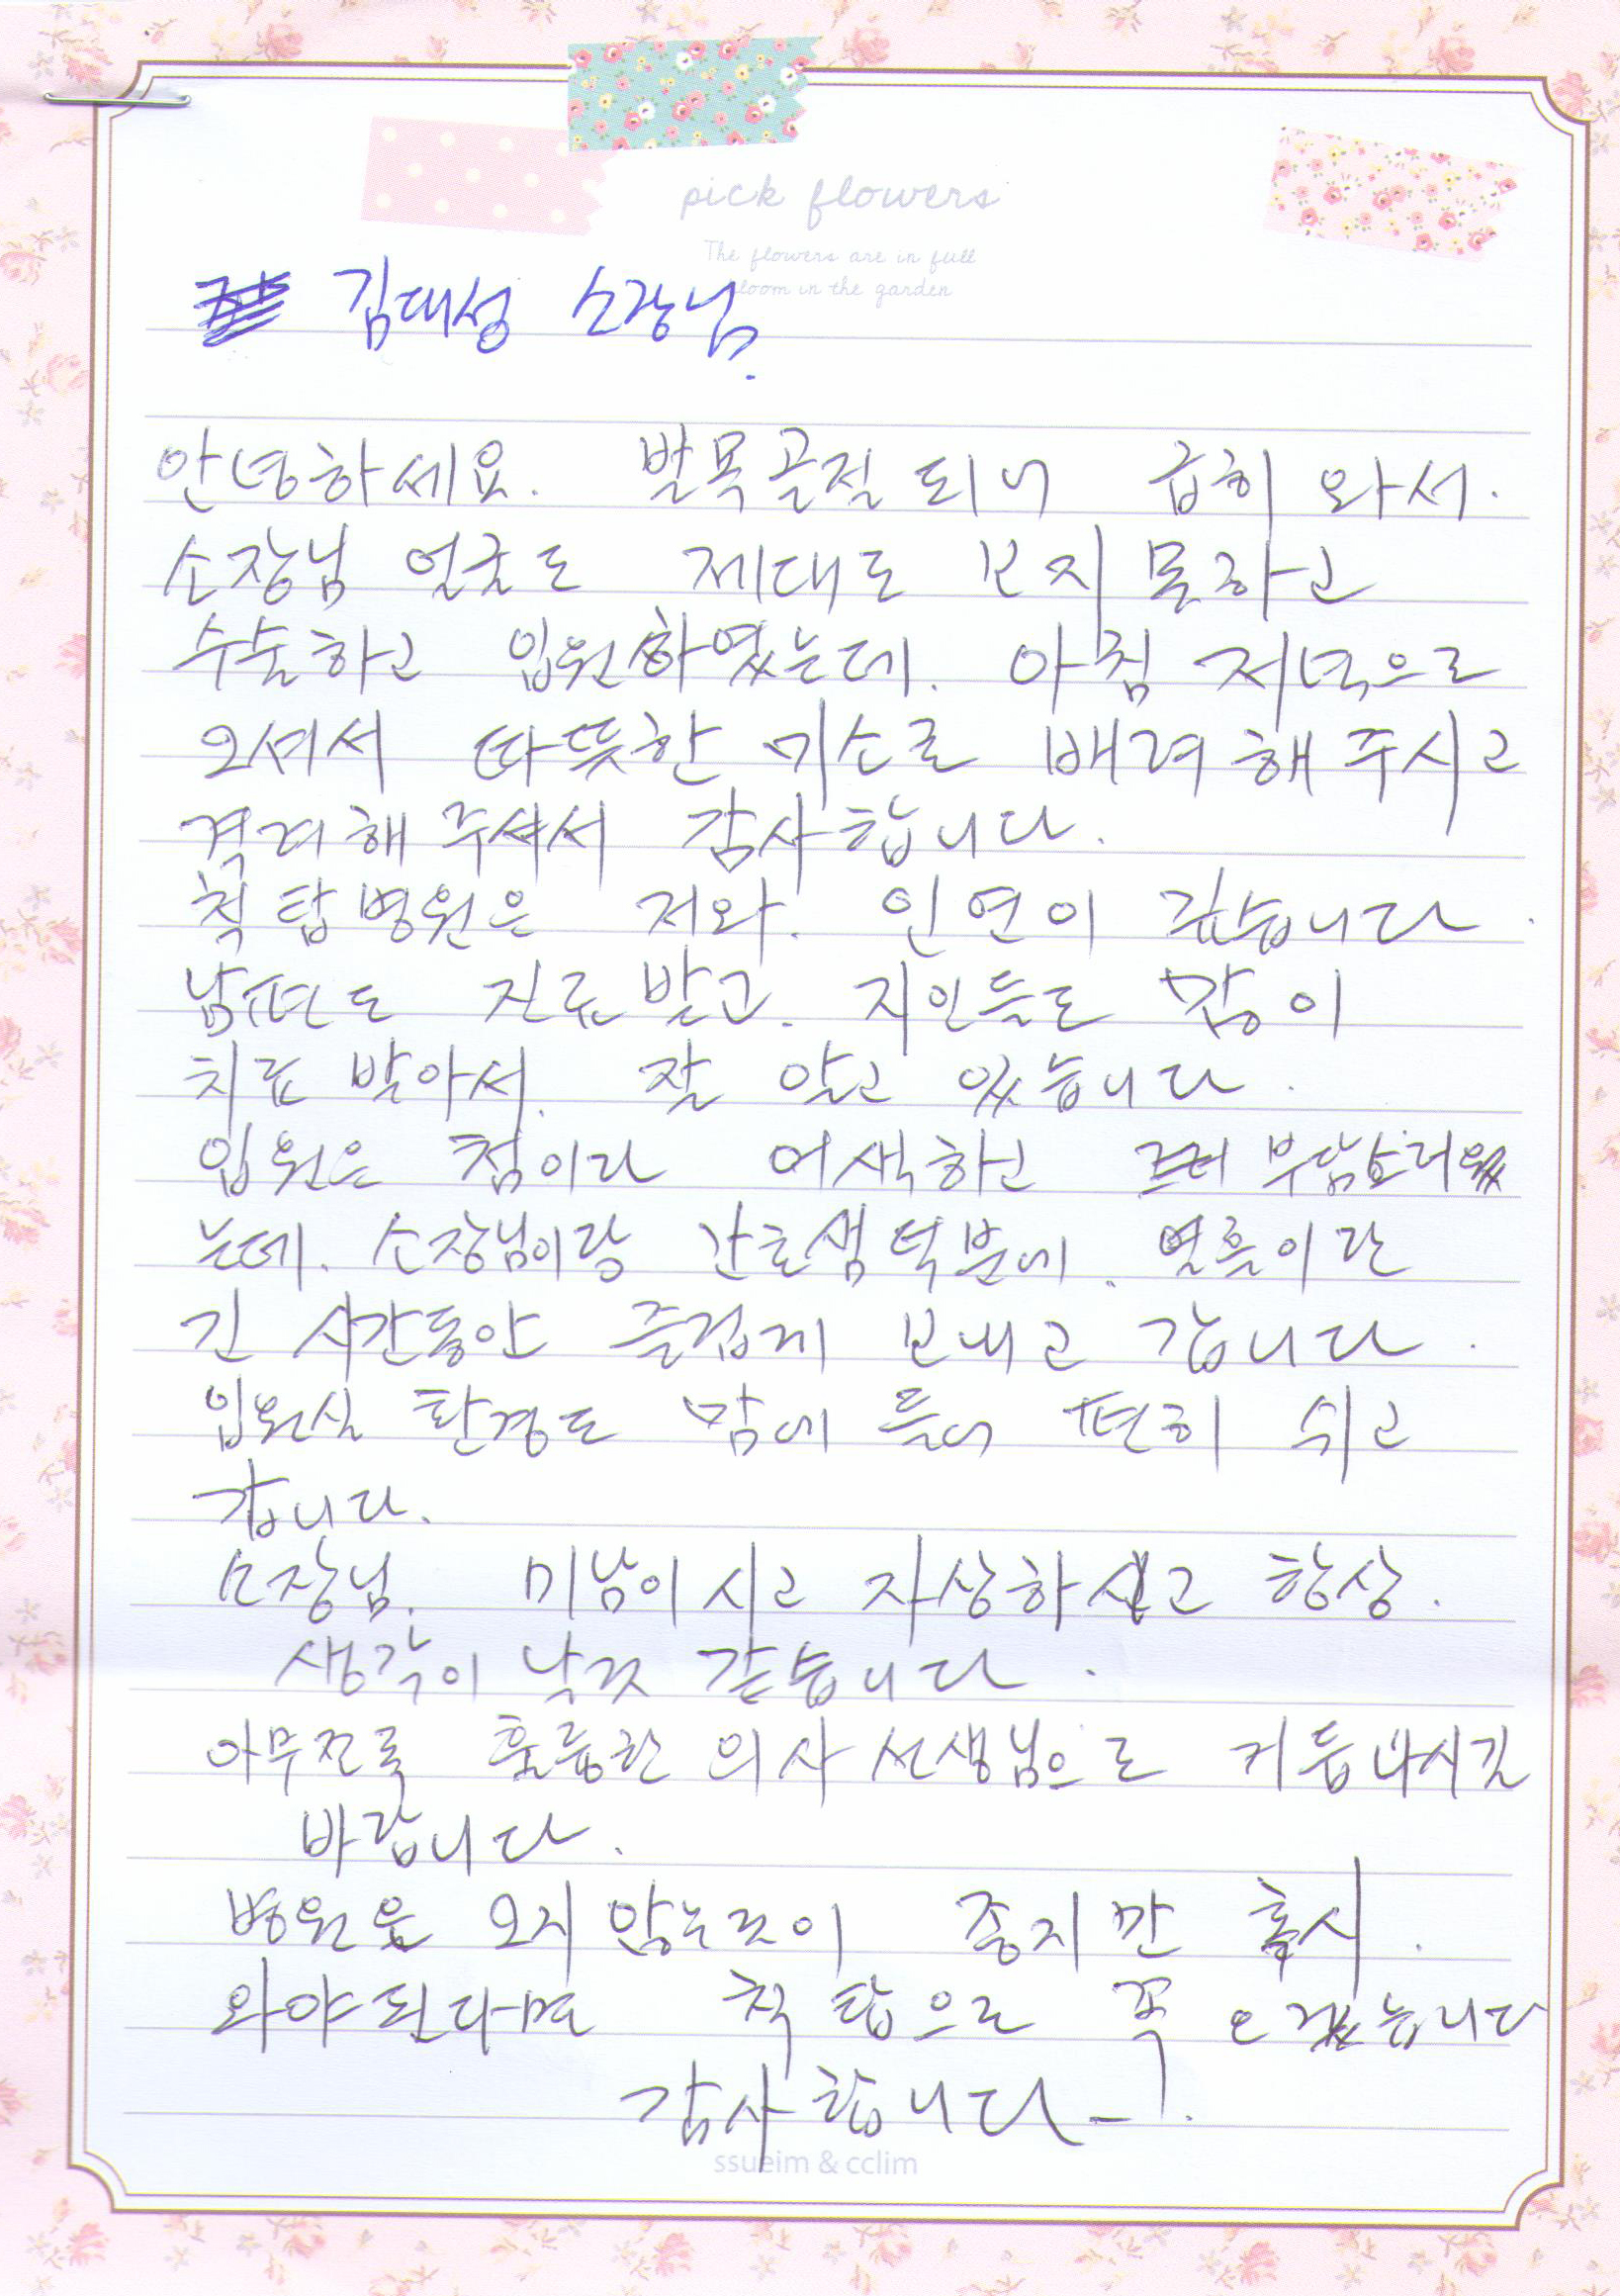 pick flowers
The flowers are in full
bloom in the garden
김대성 소장님.
안녕하세요. 발목골절되니 급히 와서.
소장님 얼굴도 제대로 보지 못하고
수술하고 입원하였는데. 아침 저녁으로
오셔서 따뜻한 미소로 배려해주시고
격려해주셔서 감사합니다.
척탑병원은 저와. 인연이 깊습니다.
남편도 진료받고. 지인들도 많이
치료받아서. 잘 알고 있습니다.
입원은 첨이라 어색하고 부담스러웠
는데. 소장님이랑 간호샘 덕분에. 열흘이란
긴 시간동안 즐겁게 보내고 갑니다.
입원실 환경도 맘에 들어 편히 쉬고
갑니다.
소장님. 미남이시고 자상하시고 항상.
생각이 날것 같습니다.
아무쪼록 훌륭한 의사선생님으로 거듭나시길
바랍니다.
병원을 오지 않는것이 좋지만 혹시.
와야된다면 척탑으로 꼭 오겠습니다
감사합니다-!.
ssueim & cclim